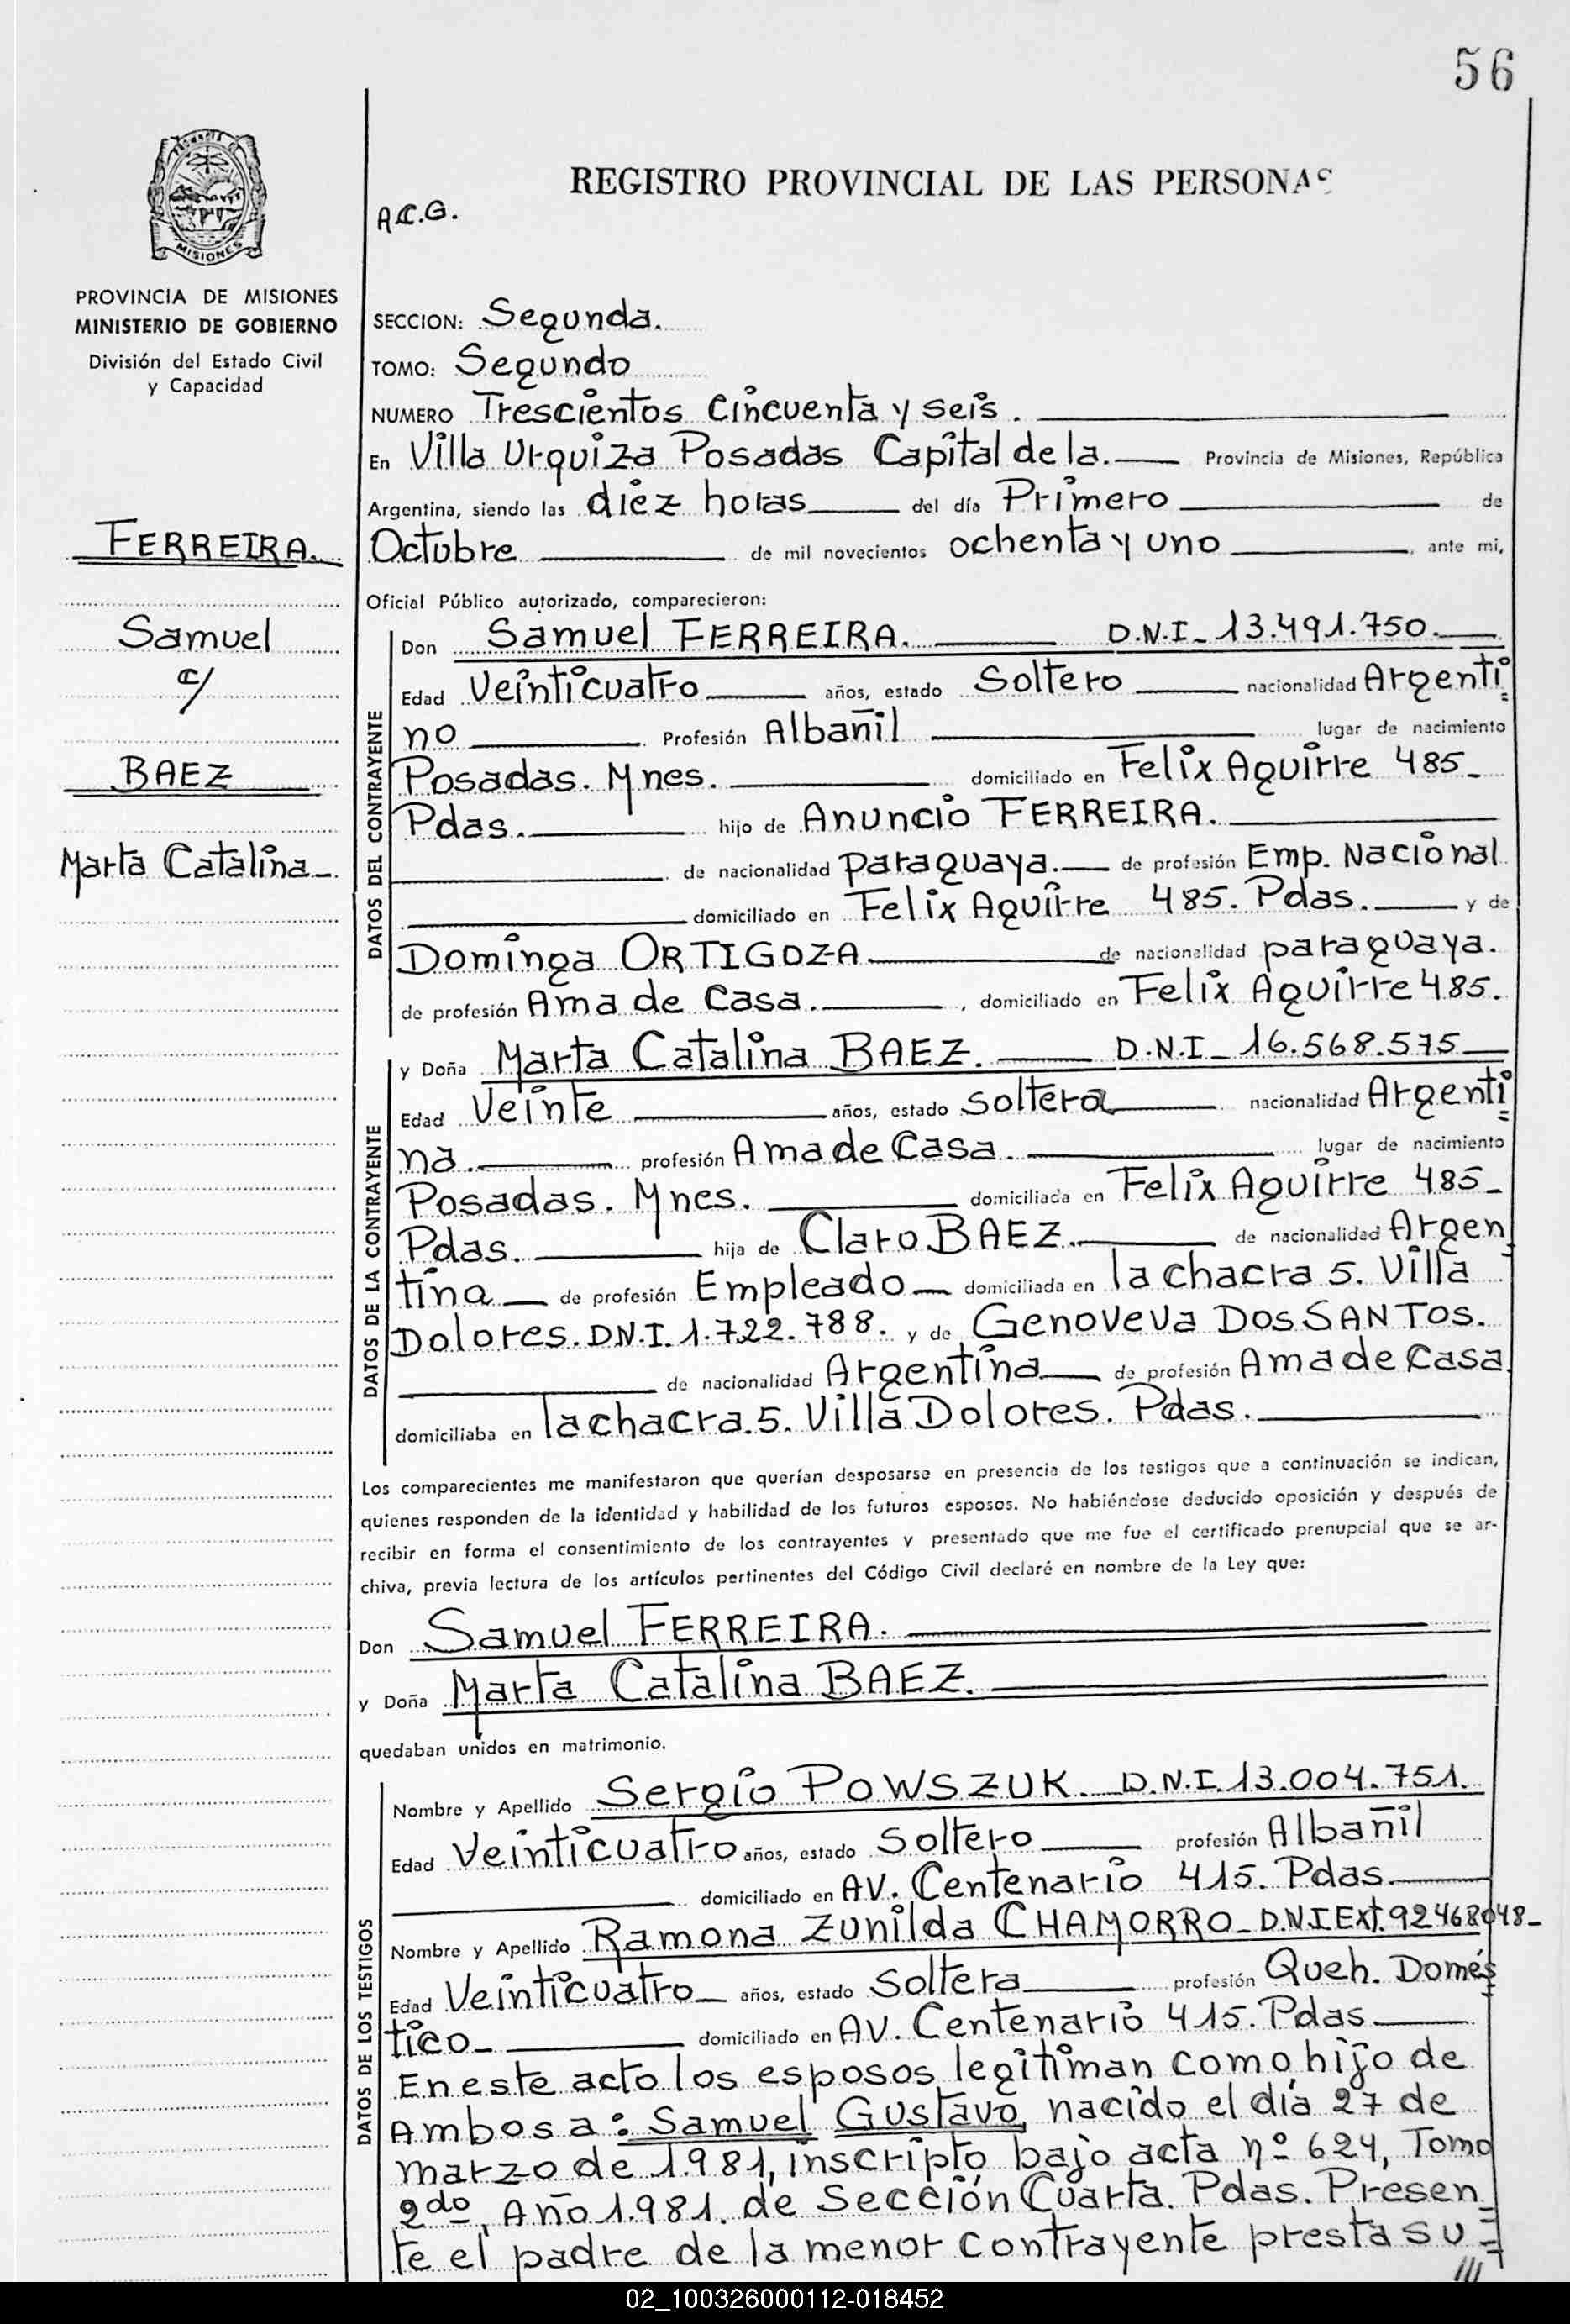 56
PROVINCIA DE
MISIONES
PROVINCIA DE MISIONES
MINISTERIO DE GOBIERNO
División del Estado Civil
y Capacidad
FERREIRA.
Samuel
c/
BAEZ
Marta Catalina_.
REGISTRO PROVINCIAL DE LAS PERSONAS
A.C.G.
SECCION: Segunda.
TOMO: Segundo
NUMERO Trescientos Cincuenta y seis.
En Villa Urquiza Posadas Capital de la. Provincia de Misiones, República
Argentina, siendo las diez horas del día Primero de
Octubre de mil novecientos ochenta y uno, ante mi,
Oficial Público autorizado, comparecieron:
DATOS DEL CONTRAYENTE
Don Samuel FERREIRA. D.N.I_ 13.491.750.
Edad Veinticuatro años, estado Soltero nacionalidad Argenti=
no Profesión Albañil lugar de nacimiento
Posadas. Mnes. domiciliado en Felix Aguirre 485_
Pdas. hijo de Anuncio FERREIRA.
de nacionalidad paraguaya. de profesión Emp. Nacional
domiciliado en Felix Aguirre 485. Pdas. y de
Dominga ORTIGOZA de nacionalidad paraguaya.
de profesión Ama de Casa. , domiciliado en Felix Aguirre 485.
DATOS DE LA CONTRAYENTE
y Doña Marta Catalina BAEZ. D.N.I_ 16.568.575
Edad Veinte años, estado soltera nacionalidad Argenti=
na. profesión Ama de Casa. lugar de nacimiento
Posadas. Mnes. domiciliada en Felix Aguirre 485_
Pdas. hija de Claro BAEZ. de nacionalidad Argen
tina de profesión Empleado domiciliada en la chacra 5. Villa
Dolores. D.N.I. 1.722.788. y de Genoveva DOS SANTOS.
de nacionalidad Argentina de profesión Ama de Casa.
domiciliaba en la chacra. 5. Villa Dolores. Pdas.
Los comparecientes me manifestaron que querían desposarse en presencia de los testigos que a continuación se indican,
quienes responden de la identidad y habilidad de los futuros esposos. No habiéndose deducido oposición y después de
recibir en forma el consentimiento de los contrayentes y presentado que me fue el certificado prenupcial que se ar-
chiva, previa lectura de los artículos pertinentes del Código Civil declaré en nombre de la Ley que:
Don Samuel FERREIRA.
y Doña Marta Catalina BAEZ.
quedaban unidos en matrimonio.
DATOS DE LOS TESTIGOS
Nombre y Apellido Sergio POWSZUK. D.N.I. 13.004.751.
Edad Veinticuatro años, estado soltero profesión Albañil
domiciliado en AV. Centenario 415. Pdas.
Nombre y Apellido Ramona Zunilda CHAMORRO_ D.N.I Ext. 92468048_
Edad Veinticuatro_ años, estado soltera profesión Queh. Domés
tico_ domiciliado en AV. Centenario 415. Pdas.
En este acto los esposos legitiman como hijo de
Ambos a: Samuel Gustavo, nacido el día 27 de
marzo de 1.981, inscripto bajo acta nº 624, Tomo
2do, Año 1.981. de Sección Cuarta. Pdas. Presen=
te el padre de la menor contrayente presta su=
///
02_100326000112-018452